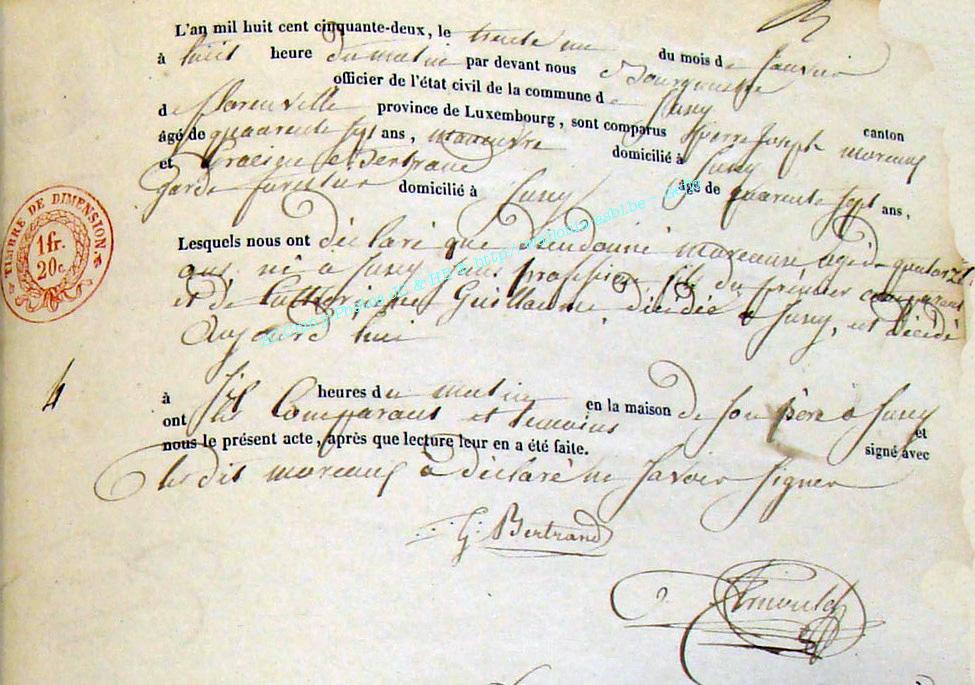 L'an mil huit cent cinquante-deux, le trente un du mois de Janvier
à huit heure du matin par devant nous Bourgmestre
officier de l'état civil de la commune de Suxy canton
de florenville province de Luxembourg, sont comparus pierre Joseph moreaux
âgé de quarente sept ans, manœuvre domicilié à Suxy
et Bertrand
Garde forestier domicilié à Suxy âgé de quarente sept ans,
Lesquels nous ont déclaré que dieudonné moreaux agé de quatorze
ans né a Suxy sans profession, fils du prémier comparant
et de Guillaume, décédé a Suxy, est décédé
aujourd hui
4
à six heures du matin en la maison de son père a Suxy
ont les Comparans et temoins et
signé avec
nous le présent acte, après que lecture leur en a été faite.
le dit moreaux a déclaré ne savoir signer
G. Bertrand
Arnould
TIMBRE DE DIMENSION
1 fr.
20 c.